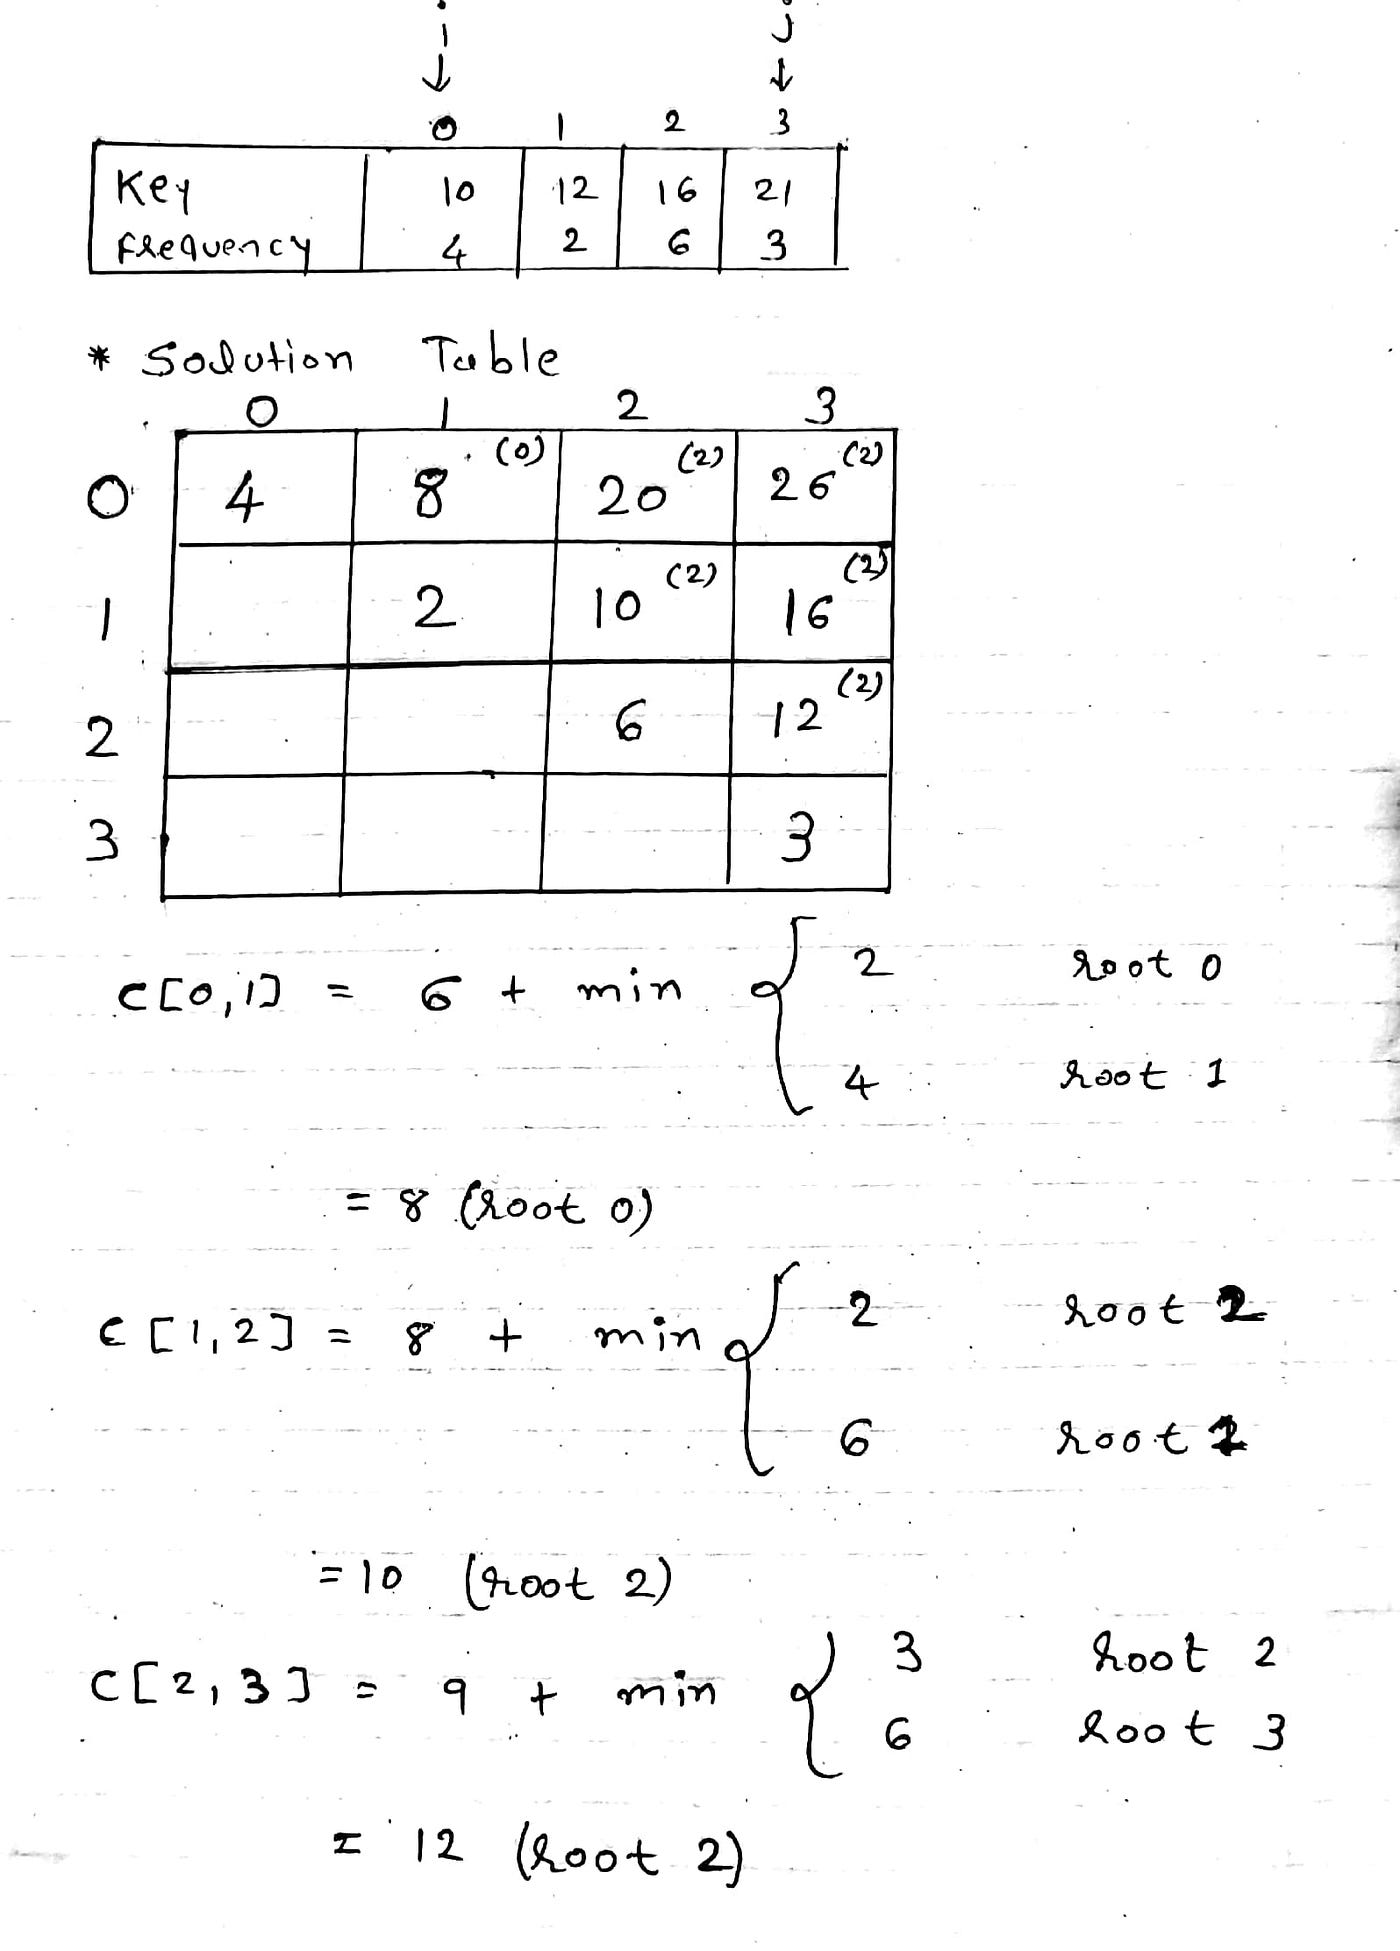 i j
0 1 2 3
Key 10 12 16 21
Frequency 4 2 6 3
* Solution Table
0 1 2 3
0 4 8 (0) 20 (2) 26 (2)
1 2 10 (2) 16 (2)
2 6 12 (2)
3 3
C[0,1] = 6 + min { 2 root 0
4 root 1
= 8 (root 0)
C[1,2] = 8 + min { 2 root 2
6 root 1
= 10 (root 2)
C[2,3] = 9 + min { 3 root 2
6 root 3
= 12 (root 2)